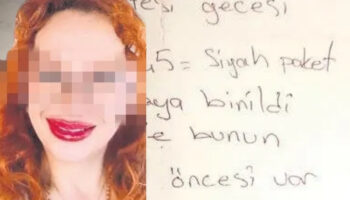 gecesi
5= Siyah paket
binildi
bunun
öncesi var